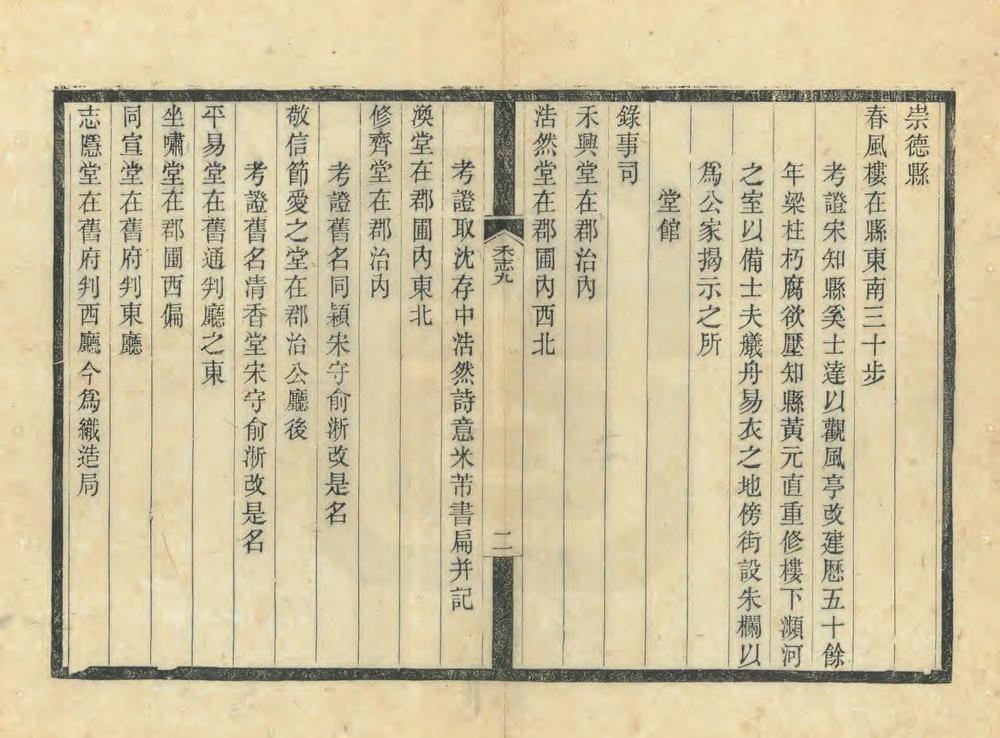 崇德縣
春風樓在縣東南三十步
考證宋知縣奚士達以觀風亭改建歷五十餘
年梁柱朽腐欲壓知縣黃元直重修樓下瀕河
之室以備士夫艤舟易衣之地傍街設朱欄以
爲公家揭示之所
堂館
錄事司
禾興堂在郡治內
浩然堂在郡圃內西北
禾志九
二
考證取沈存中浩然詩意米芾書扁并記
渙堂在郡圃內東北
修齊堂在郡治內
考證舊名同穎宋守俞浙改是名
敬信節愛之堂在郡治公廳後
考證舊名清香堂宋守俞浙改是名
平易堂在舊通判廳之東
坐嘯堂在郡圃西偏
同宣堂在舊府判東廳
志隱堂在舊府判西廳今爲織造局